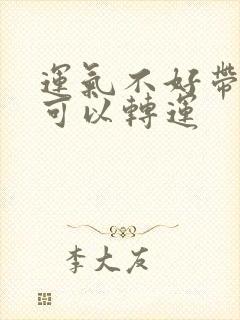 運氣不好帶
可以轉運
李大友